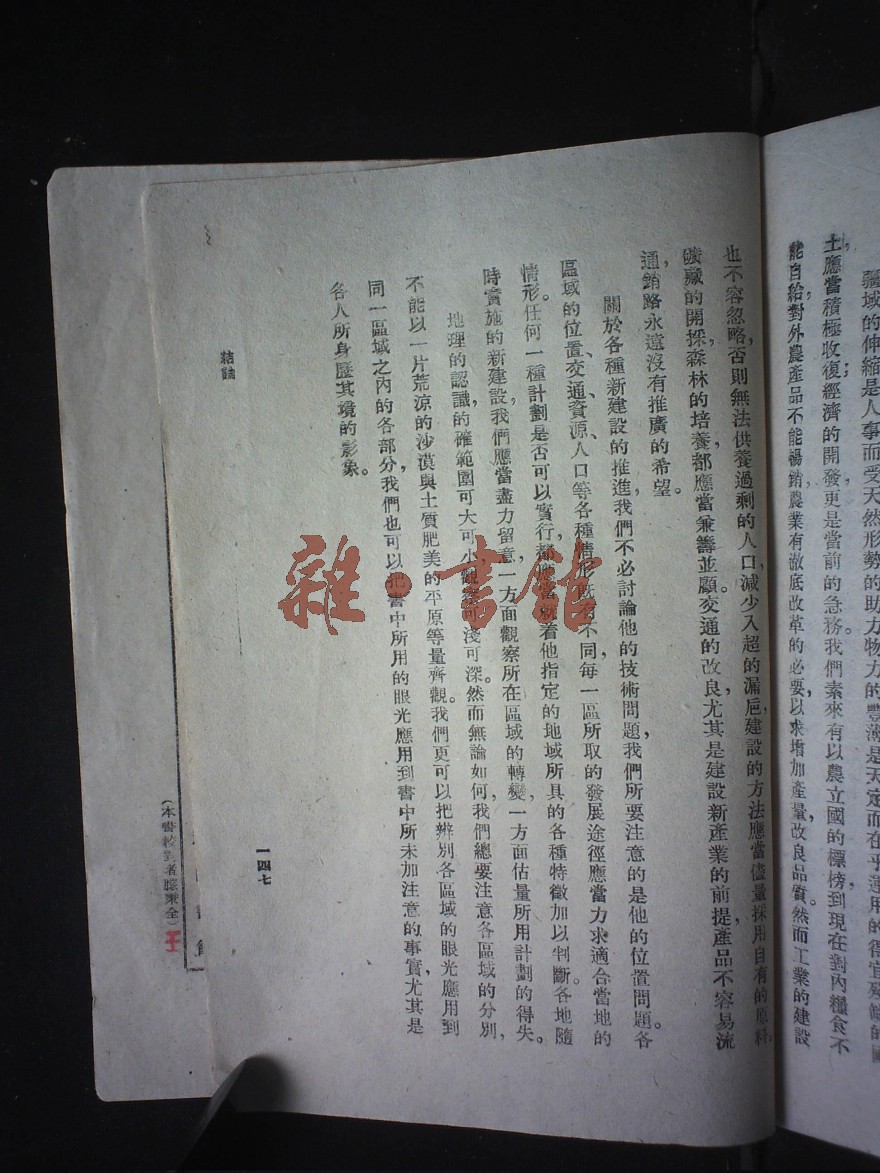 疆域的伸縮是人事而受天然形勢的助力物力的豐薄是天定而在乎運用的得宜
土應當積極收復經濟的開發更是當前的急務。我們素來有以農立國的標榜到現在對內糧食不
能自給對外農產品不能暢銷農業有澈底改革的必要以求增加產量改良品質然而工業的建設
也不容忽略，否則無法供養過剩的人口，減少入超的漏巵建設的方法應當儘量採用自有的原料，
礦藏的開採森林的培養都應當兼籌並顧。交通的改良，尤其是建設新產業的前提，產品不容易流
通，銷路永遠沒有推廣的希望。
關於各種新建設的推進，我們不必討論他的技術問題，我們所要注意的是他的位置問題。各
區域的位置、交通、資源、人口等各種情形既有不同，每一區所取的發展途徑應當力求適合當地的
情形。任何一種計劃是否可以實行，都應當就着他指定的地域所具的各種特徵加以判斷。各地隨
時實施的新建設，我們應當盡力留意一方面觀察所在區域的轉變，一方面估量所用計劃的得失。
地理的認識的確範圍可大可小觀察可淺可深。然而無論如何，我們總要注意各區域的分別，
不能以一片荒涼的沙漠與土質肥美的平原等量齊觀。我們更可以把辨別各區域的眼光應用到
同一區域之內的各部分，我們也可以把書中所用的眼光應用到書中所未加注意的事實，尤其是
各人所身歷其境的影象。
結論
一四七
(本書校對者
雜·書館